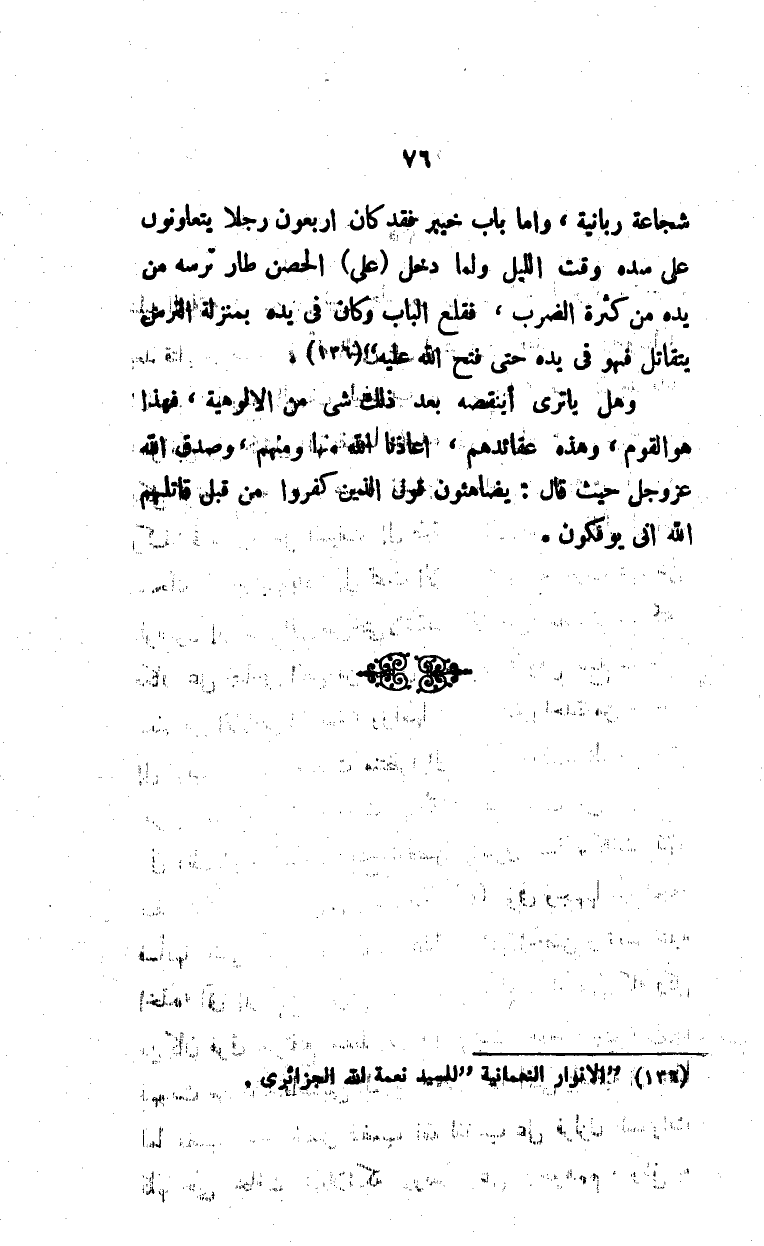 ٧٦
شجاعة ربانية ، واما باب خيبر فقد كان اربعون رجلا يتعاونون
على سده وقت الليل ولما دخل (على) الحصن طار ترسه من
يده من كثرة الضرب ، فقلع الباب وكان فى يده بمنزلة الترس
يتقاتل فهو فى يده حتى فتح الله عليه"(١٣٦) .
وهل ياترى أينقصه بعد ذلك شى من الالوهية ، فهذا
هوالقوم ، وهذه عقائدهم ، اعاذنا الله منها ومنهم ، وصدق الله
عزوجل حيث قال : يضاهئون قول الذين كفروا من قبل قاتلهم
الله انى يوفكون .
(١٣٦) "الانوار النعمانية "للسيد نعمة لله الجزائرى .